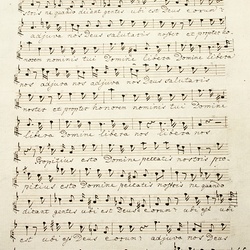 nos ne quando dicant gentes ubi est Deus e orum?
adjuva nos Deus salutaris noster et propter ho
norem nominis tui Domine libera Domine libera
nos adjuva nos adjuva nos Deus salutaris
noster et propter honorem nominis tui Domine
libera Domine libera nos libera nos
Propitius esto Domine peccatis nostris pro,
pitius esto Domine peccatis nostris ne quando
dicant gentes ubi est Deus e orum? ubi est ubi
est ubi est Deus e orum? adjuva nos Deus